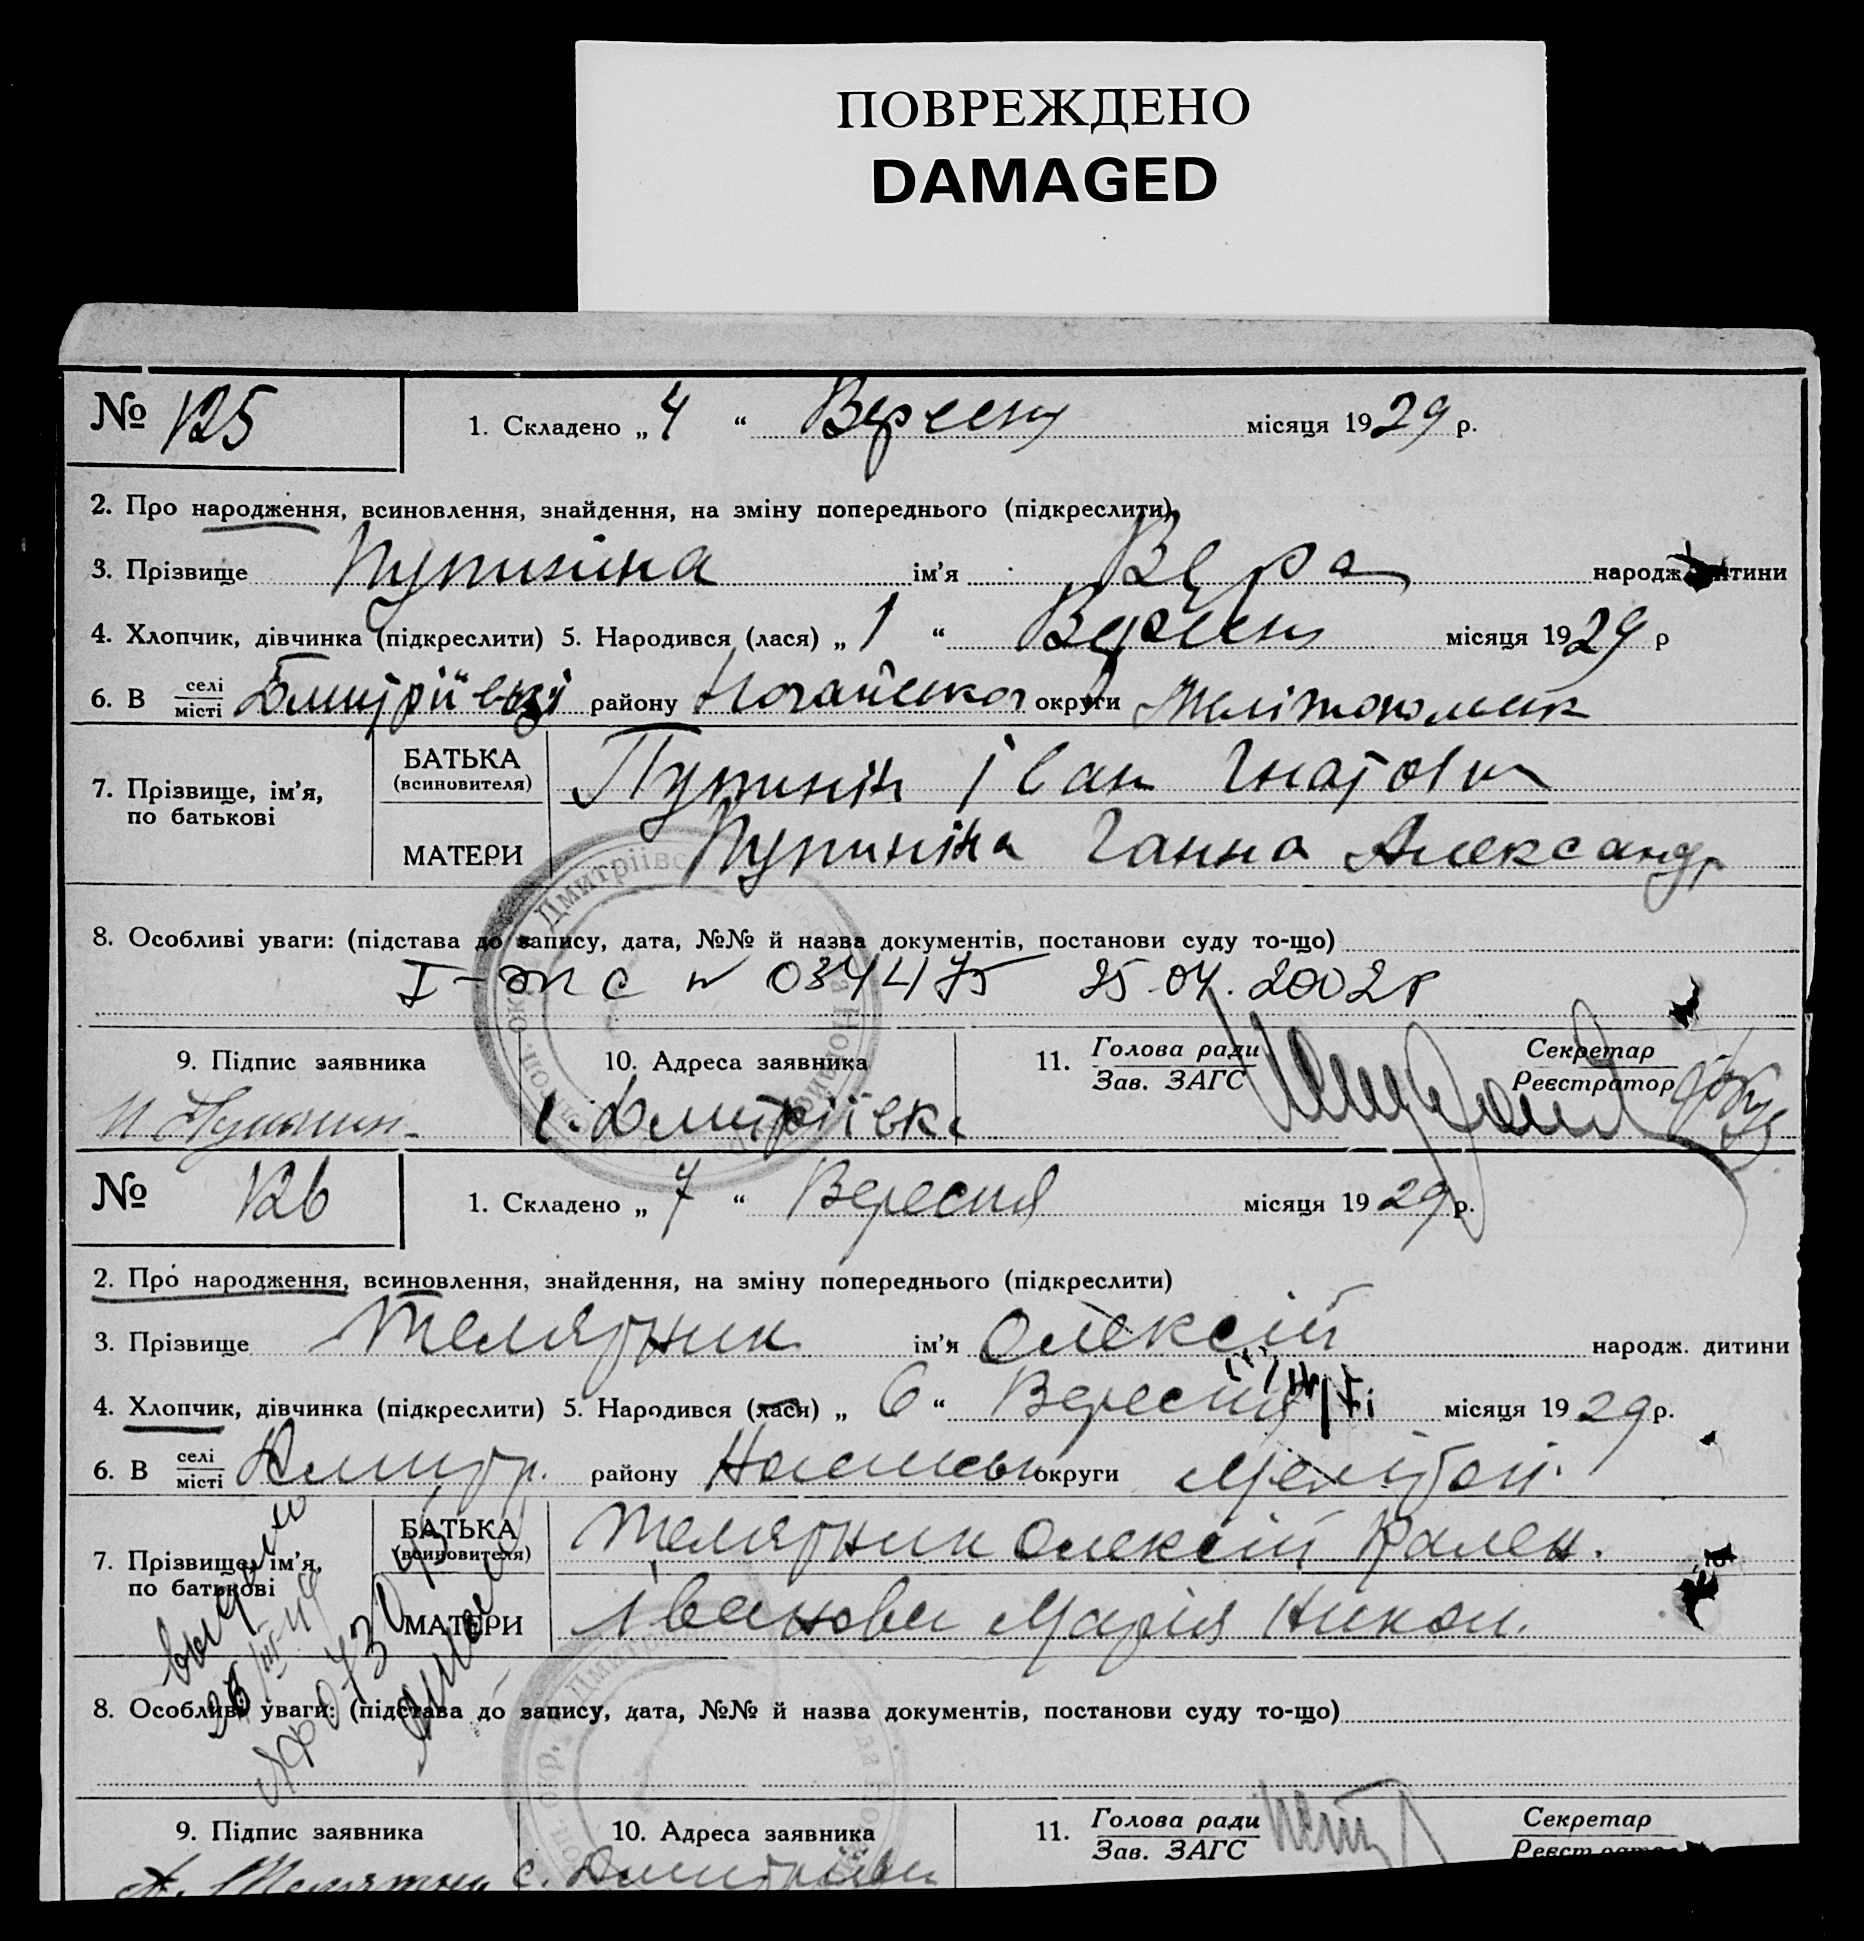 ПОВРЕЖДЕНО
DAMAGED
№ 125
1. Складено „ 4 “ Вересня місяця 1929 р.
2. Про народження, всиновлення, знайдення, на зміну попереднього (підкреслити)
3. Прізвище Пупиніна ім’я Вера народж. дитини
4. Хлопчик, дівчинка (підкреслити) 5. Народився (лася) „ 1 “ Вересня місяця 1929 р
6. В селі місті Дмитріївкі району Ногайського округи Мелітопольськ
7. Прізвище, ім’я, по батькові
БАТЬКА (всиновителя) Пупинін Іван Гнатови
МАТЕРИ Пупиніна Ганна Александр
8. Особливі уваги: (підстава до запису, дата, №№ й назва документів, постанови суду то-що)
І-ЖС № 034475 25.04.2002г
9. Підпис заявника 10. Адреса заявника 11. Голова ради Зав. ЗАГС Секретар Реєстратор
И Пупинин с. Дмитріївка
№ 126
1. Складено „ 7 “ Вересня місяця 1929 р.
2. Про народження, всиновлення, знайдення, на зміну попереднього (підкреслити)
3. Прізвище Телятник ім’я Олексій народж. дитини
4. Хлопчик, дівчинка (підкреслити) 5. Народився (лася) „ 6 “ Вересня місяця 1929 р.
6. В селі місті Дмитр. району округи Мелітоп.
7. Прізвище, ім’я, по батькові
БАТЬКА (всиновителя) Телятник Олексій Кален.
МАТЕРИ Іванова Марія Никол.
8. Особливі уваги: (підстава до запису, дата, №№ й назва документів, постанови суду то-що)
9. Підпис заявника 10. Адреса заявника 11. Голова ради Зав. ЗАГС Секретар
А. Телятник с. Дмитрівка